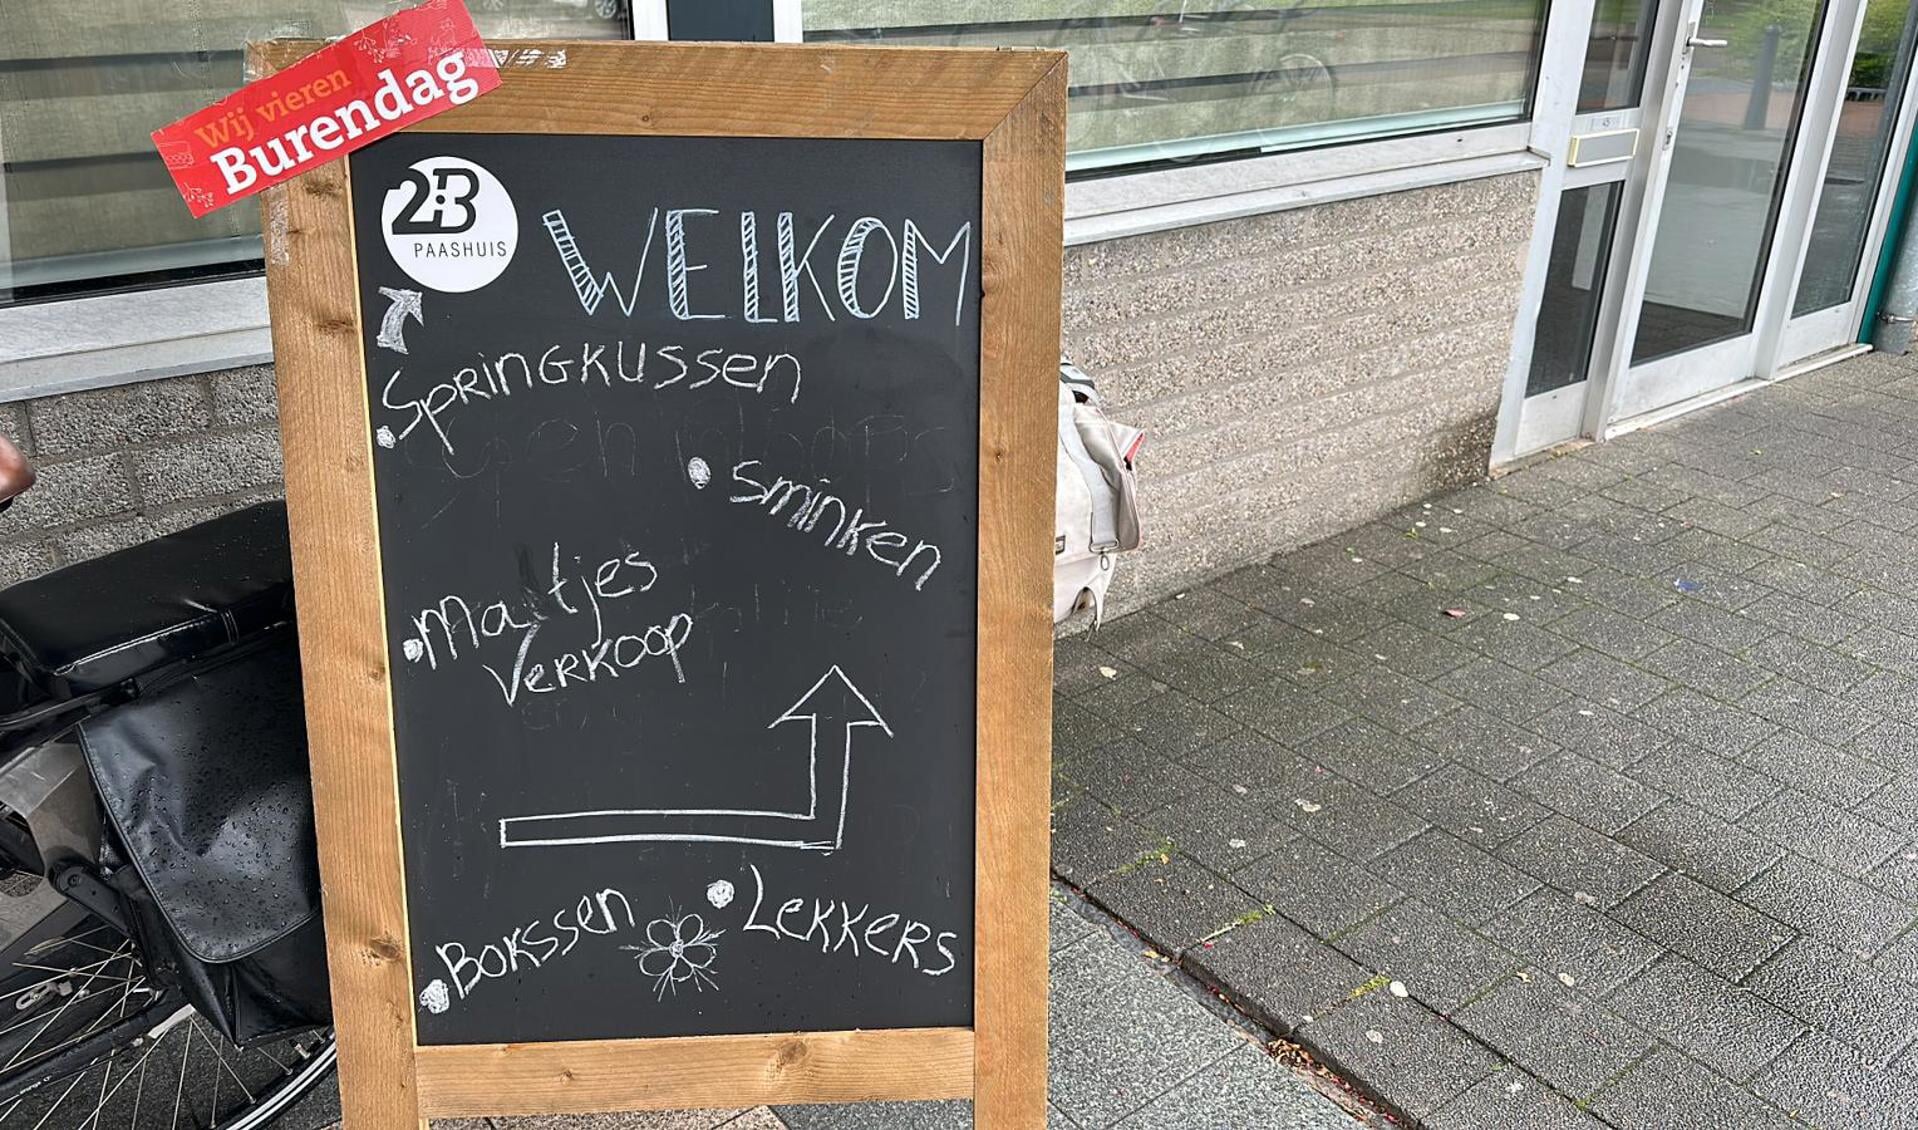 Wij vieren
Burendag
2B
PAASHUIS
WELKOM
SPRINGKUSSEN
SMINKEN
Maltjes
VERKOOP
BOKSSEN
LEKKERS